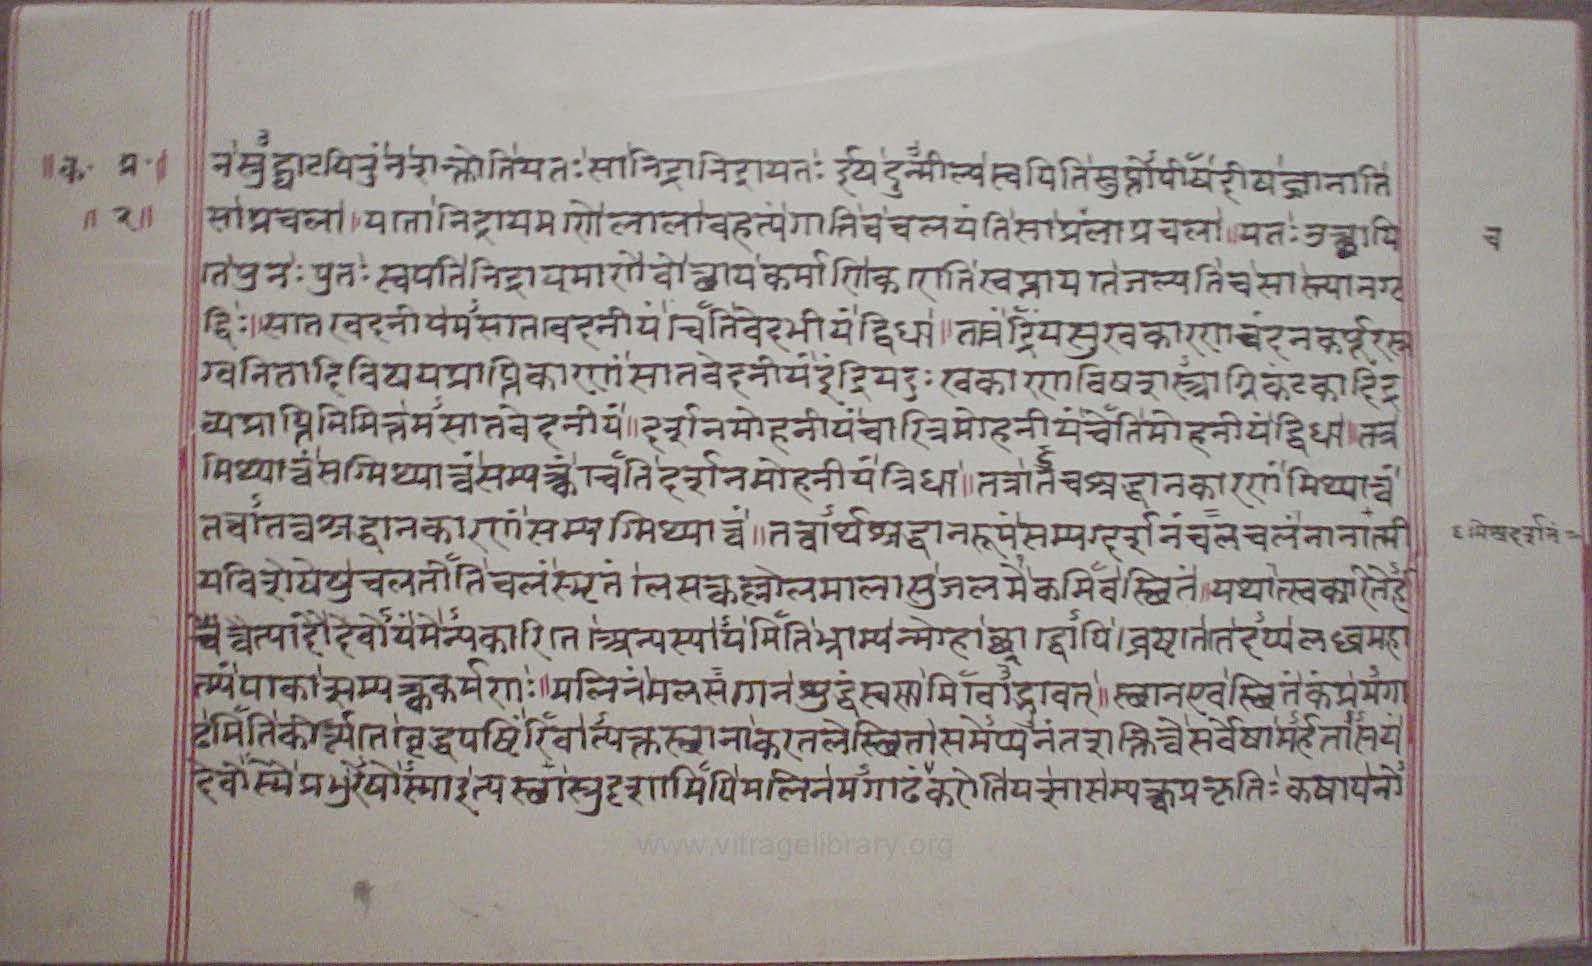 ॥क. प्र.॥
॥२॥
न चक्षुरुद्घाटयितुं न शक्नोति यतः सा निद्रानिद्रा यतः ईषदुन्मील्य स्वपिति सुप्तोपीषदीषज्जानाति
सा प्रचला॥ यतो निद्रायमाणे लाला वहत्यंगानि च चलयंति सा प्रचलाप्रचला॥ यतः उत्थापि
च
ते पुनः पुनः स्वपति निद्रायमाणे चोत्थाय कर्माणि करोति स्वप्नायते जल्पति च सा स्त्यानगृ
द्धिः॥ सातवेदनीयमसातावेदनीयं चेति वेदनीयं द्विधा॥ तत्रेंद्रियसुखकारण चंदनकर्पूरस्र
ग्वनितादिविषयप्राप्तिकारणं सातवेदनीयं इंद्रियदुःखकारणविषशस्त्राग्निकंटकादिद्र
व्यप्राप्तिनिमित्तमसातवेदनीयं॥ दर्शनमोहनीयं चारित्रमोहनीयं चेति मोहनीयं द्विधा॥ तत्र
मिथ्यात्वं सम्यग्मिथ्यात्वं सम्यक्त्वं चेति दर्शनमोहनीयं त्रिधा॥ तत्रातत्त्वश्रद्धानकारणं मिथ्यात्वं
तत्वातत्वश्रद्धानकारणं सम्यग्मिथ्यात्वं॥ तत्वार्थश्रद्धानरूपं सम्यग्दर्शनं चलचलं नानात्मी
यविशेषेषु चलतीति चलं स्मृतं। लसत्कल्लोलमालासु जलमेकमिव स्थितं॥ यथा स्वकारितेर्ह
च्चैत्यादौ देवोयं मेन्यकारिते। अन्यस्यायमिति भ्राम्यन्मोहाच्छ्राद्धोपि चेष्टते तदप्यलब्धमहा
त्म्यं पाकात्सम्यक्त्वकर्मणः॥ मलिनं मलसंगेन शुद्धं स्वर्णमिवोद्भवेत्॥ स्थान एव स्थितं कंप्रमगा
ढमिति कीर्त्यते। वृद्धयष्टिरिवात्यक्तस्थाना करतले स्थिता। समेप्यनंतशक्तित्वे सर्वेषामर्हतामयं
देवोस्मै प्रभुरेषोस्मा इत्यास्था सुदृशामपि मलिनमगाढं करोति यत्सा सम्यक्त्वप्रकृतिः कषायनो